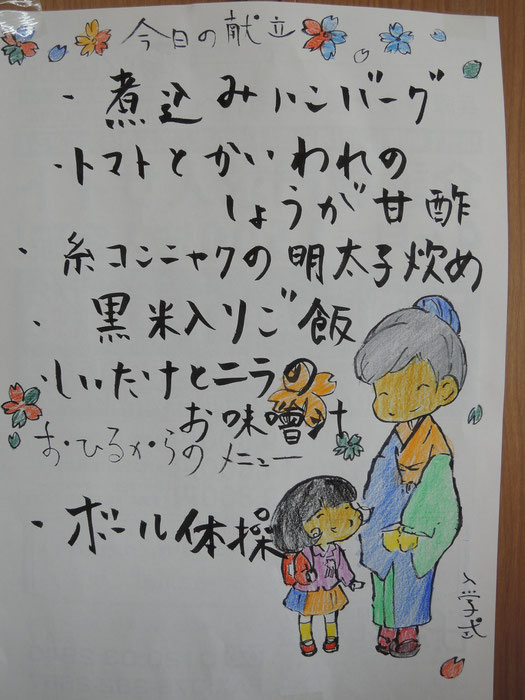 今日の献立
・煮込みハンバーグ
・トマトとかいわれの
しょうが甘酢
・糸コンニャクの明太子炊め
・黒米入りご飯
・しいたけとニラの
お味噌汁
おひるからのメニュー
・ボール体操
入学式